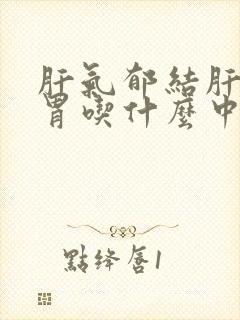 肝氣郁結肝
胃喫什麼中
點绛唇1